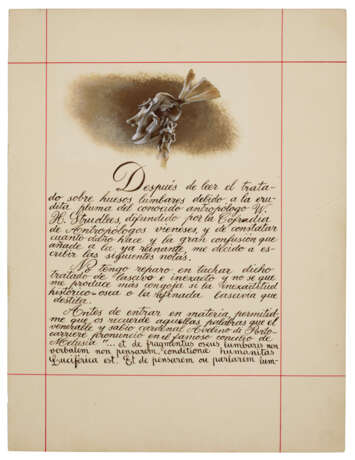 Después de leer el trata-
do sobre huesos lumbares debido a la eru-
dita pluma del conocido antropólogo W.
H. Strudlees, difundido por la Cofradia
de Antropólogos vieneses, y de constatar
cuanto daño hace y la gran confusion que
añade a la ya reinante, me decido a es-
cribir las siguientes notas.
No tengo reparo en tachar dicho
tratado de lascivo e inexacto y no se que
me produce más congoja si la inexactitud
historico-osea o la refinada lascivia que
destila.
Antes de entrar en materia, permitid-
me que os recuerde aquellas palabras que el
venerable y sabio cardenal Avelino de Porto-
carriere pronunció en el famoso concilio de
Melusia "... et de fragmentus oseus lumbares non
verbalem non pensarem, conditione humanitas
Luciferica est. Et de pensarem ou parlarem lum-